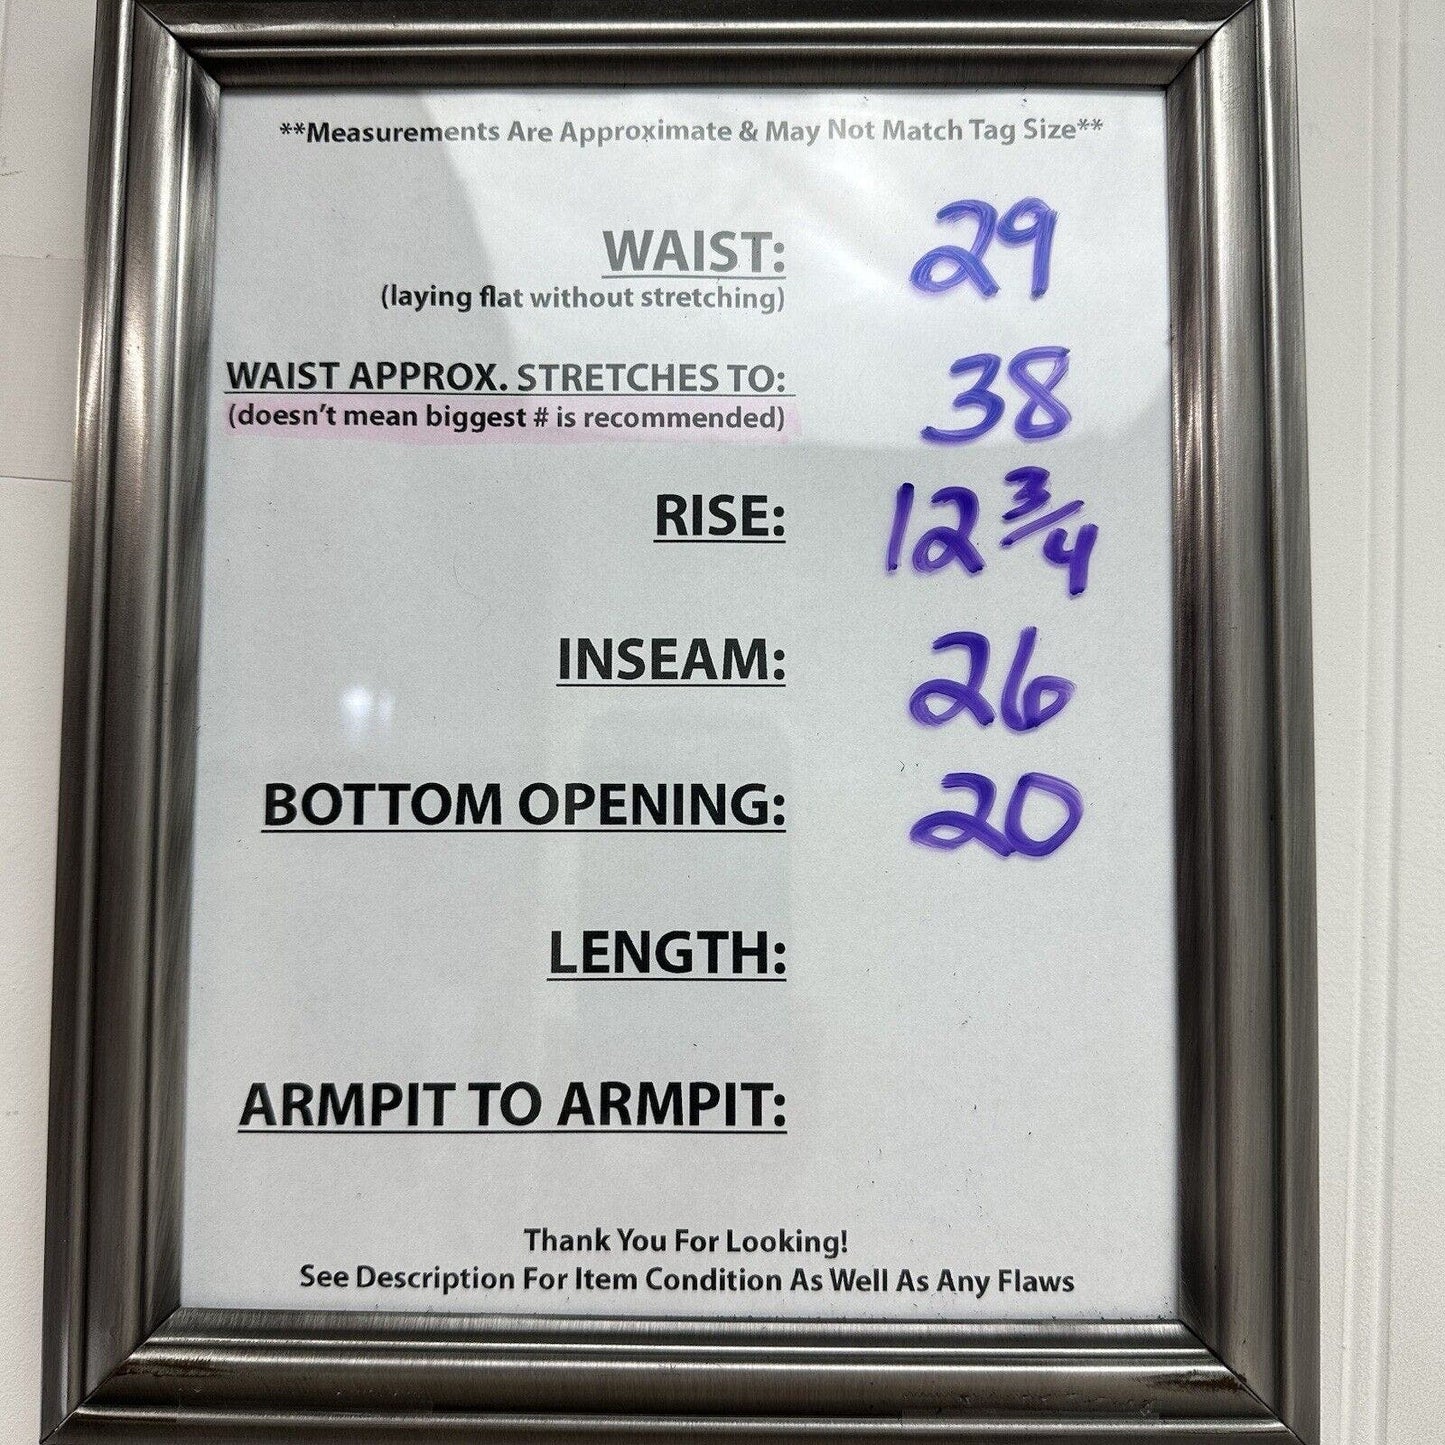 **Measurements Are Approximate & May Not Match Tag Size**
WAIST: 29
(laying flat without stretching)
WAIST APPROX. STRETCHES TO: 38
(doesn't mean biggest # is recommended)
RISE: 12 3/4
INSEAM: 26
BOTTOM OPENING: 20
LENGTH:
ARMPIT TO ARMPIT:
Thank You For Looking!
See Description For Item Condition As Well As Any Flaws